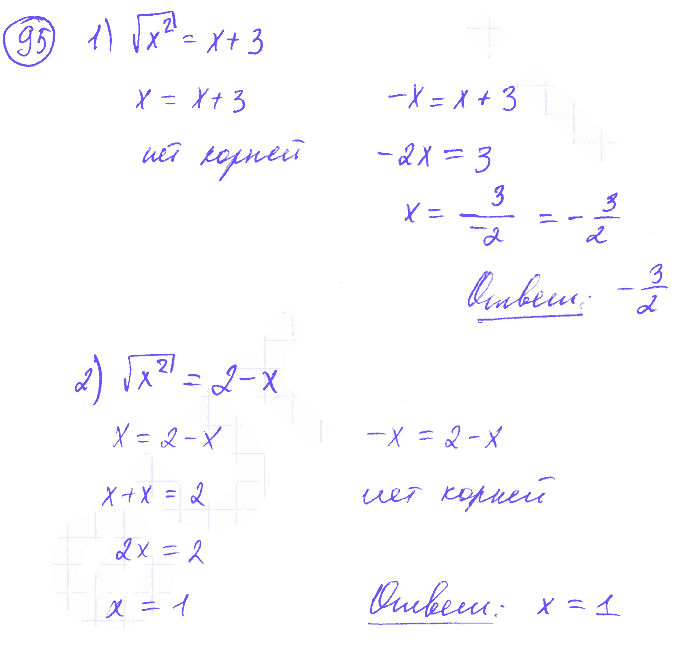 95 1) √x² = x + 3
x = x + 3
нет корней
-x = x + 3
-2x = 3
x = 3/-2 = -3/2
Ответ: -3/2
2) √x² = 2 - x
x = 2 - x
x + x = 2
2x = 2
x = 1
-x = 2 - x
нет корней
Ответ: x = 1